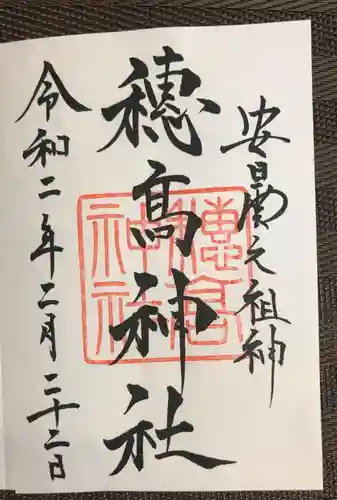 安曇之祖神
穂髙神社
令和二年二月二十二日
穂高神社